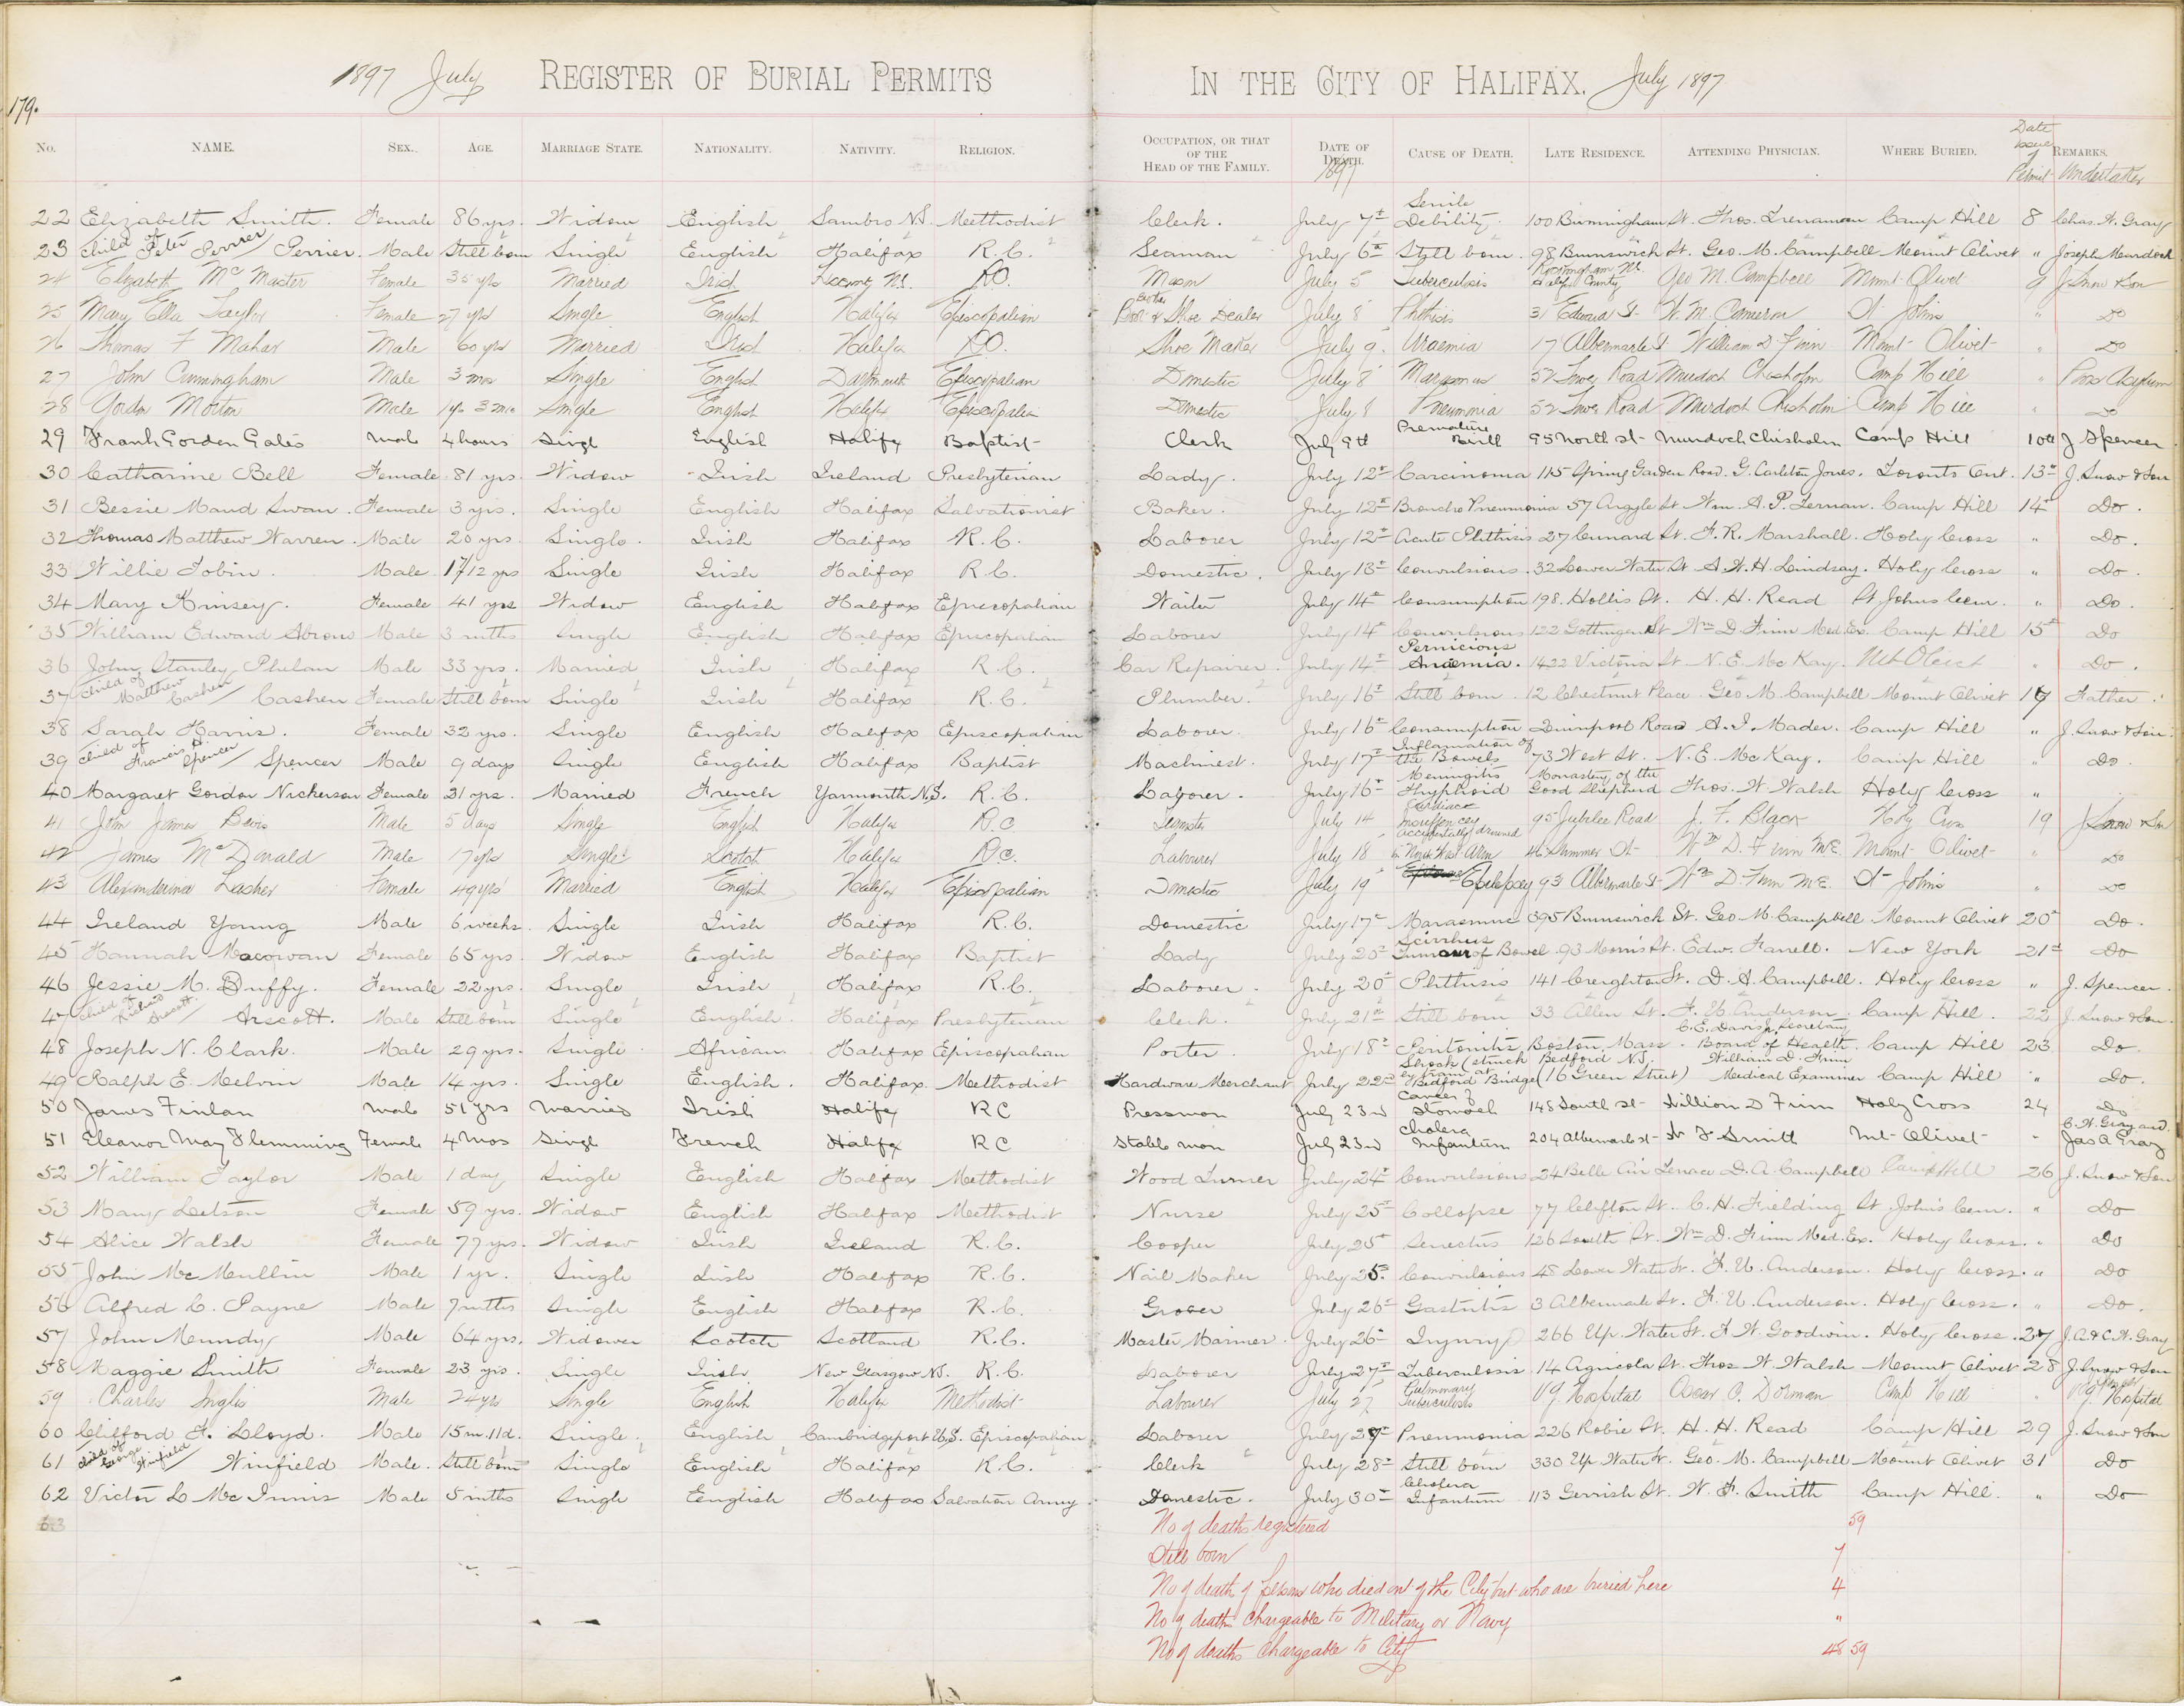 1897 July REGISTER OF BURIAL PERMITS IN THE CITY OF HALIFAX. July 1897
179.
No. NAME. SEX. AGE. MARRIAGE STATE. NATIONALITY. NATIVITY. RELIGION. OCCUPATION, OR THAT OF THE HEAD OF THE FAMILY. DATE OF DEATH. 1897 CAUSE OF DEATH. LATE RESIDENCE. ATTENDING PHYSICIAN. WHERE BURIED. Date issue of Permit REMARKS. Undertaker
22 Elizabeth Smith. Female 86 yrs. Widow English Sambro N.S. Methodist Clerk. July 7th Senile Debility. 100 Birmingham St. Thos. Trenaman Camp Hill 8 Chas. N. Gray
23 Child of Peter Perrier Perrier. Male Still born Single English Halifax R.C. Seaman July 6th Still born. 98 Brunswick St. Geo. M. Campbell Mount Olivet " Joseph Murdock
24 Elizabeth McMaster Female 35 yrs Married Irish N.S. R.C. Mason July 5 Tuberculosis Rockingham N.S. Halifax County Geo M. Campbell Mount Olivet 9 J Snow & Son
25 Mary Ella Taylor Female 27 yrs Single English Halifax Episcopalian Boot & Shoe Dealer July 8 Phthisis 31 Edward St W. M. Cameron St Johns " Do
26 Thomas F Mahar Male 60 yrs Married Irish Halifax R.C. Shoe Maker July 9 Uraemia 17 Albermarle St William D Finn Mount Olivet " Do
27 John Cunningham Male 3 mos Single English Dartmouth Episcopalian Domestic July 8 Marasmus 52 Inver Road Murdoch Chisholm Camp Hill " Poors Asylum
28 Gordon Morton Male 1 yr 3 mos Single English Halifax Episcopalian Domestic July 8 Pneumonia 52 Inver Road Murdoch Chisholm Camp Hill " Do
29 Frank Gorden Gates Male 4 hours Single English Halifax Baptist Clerk July 9th Premature Birth 95 North St Murdoch Chisholm Camp Hill 10th J Spencer
30 Catharine Bell Female 81 yrs. Widow Irish Ireland Presbyterian Lady. July 12th Carcinoma 115 Spring Garden Road. G. Carleton Jones. Toronto Ont. 13th J. Snow & Son
31 Bessie Maud Swan. Female 3 yrs. Single English Halifax Salvationist Baker. July 12th Broncho Pneumonia 57 Argyle St Wm. A. P. Ternan. Camp Hill 14th Do.
32 Thomas Matthew Warren. Male 20 yrs. Single. Irish Halifax R.C. Laborer July 12th Acute Phthisis 27 Cunard St. F. R. Marshall. Holy Cross " Do.
33 Willie Tobin. Male 1 7/12 yrs Single Irish Halifax R.C. Domestic. July 13th Convulsions. 32 Lower Water St A. W. H. Lindsay. Holy Cross " Do.
34 Mary Kinsey. Female 41 yrs Widow English Halifax Episcopalian Waiter July 14th Consumption 198. Hollis St. H. H. Read St Johns Cem. " Do.
35 William Edward Abrous Male 3 mths Single English Halifax Episcopalian Laborer July 14th Convulsions 122 Gottingen St Wm D. Finn Med. Ex. Camp Hill 15th Do
36 John Stanley Phelan Male 33 yrs. Married Irish Halifax R.C. Car Repairer. July 14th Pernicious Anaemia. 1422 Victoria St N. E. McKay. Mt Olivet " Do.
37 Child of Matthew Cashen Cashen Female Still born Single Irish Halifax R.C. Plumber. July 16th Still born. 12 Chestnut Place Geo M. Campbell Mount Olivet 17 Father.
38 Sarah Harris. Female 32 yrs. Single English Halifax Episcopalian Laborer. July 16th Consumption Quinpool Road A. I. Mader. Camp Hill " J. Snow & Son.
39 Child of Francis Spencer Spencer Male 9 days Single English Halifax Baptist Machinist. July 17th Inflamation of the Bowels 73 West St. N. E. McKay. Camp Hill " Do.
40 Margaret Gordon Nickerson Female 31 yrs. Married French Yarmouth N.S. R.C. Laborer. July 16th Meningitis Thyphoid Monastery of the Good Shepherd Thos. W. Walsh Holy Cross "
41 John James Male 5 days Single English Halifax R.C. Teamster July 14 Cardiac Insufficency 95 Jubilee Road J. F. Black Holy Cross 19 J Snow & Son
42 James McDonald Male 17 yrs Single Scotch Halifax R.C. Labourer July 18 accidentally drowned in North West Arm 46 Summer St Wm D. Finn M.E. Mount Olivet " Do
43 Alexanderina Lasher Female 49 yrs Married English Halifax Episcopalian Domestic July 19 Epilepsy 93 Albermarle St Wm D. Finn M.E. St Johns " Do
44 Ireland Young Male 6 weeks. Single Irish Halifax R.C. Domestic July 17th Marasmus 395 Brunswick St. Geo. M. Campbell. Mount Olivet 20th Do.
45 Hannah Macowan Female 65 yrs. Widow English Halifax Baptist Lady July 20th Scirrhus Tumour of Bowel. 93 Morris St. Edw. Farrell. New York 21st Do
46 Jessie M. Duffy. Female 22 yrs. Single Irish Halifax R.C. Laborer. July 20th Phthisis 141 Creighton St. D. A. Campbell. Holy Cross " J. Spencer.
47 Child of Richard Arscott Arscott. Male Still born Single English. Halifax Presbyterian Clerk. July 21st Still born 33 Allen St. F. U. Anderson. Camp Hill. 22 J. Snow & Son.
48 Joseph N. Clark. Male 29 yrs. Single African Halifax Episcopalian Porter. July 18th Peritonitis Boston Mass. C. E. Davis Jr. Secretary Board of Health. Camp Hill 23 Do
49 Ralph E. Melvin Male 14 yrs. Single English. Halifax. Methodist Hardware Merchant July 22nd Shock (struck by train at Bedford Bridge) Bedford N.S. (16 Green Street) William D. Finn Medical Examiner Camp Hill " Do.
50 James Finlan Male 51 yrs Married Irish Halifax RC Pressman July 23rd Cancer of Stomach 148 South St William D Finn Holy Cross 24 Do
51 Eleanor May Flemming Female 4 mos Single French Halifax RC Stable man July 23rd Cholera Infantum 204 Albemarle st W F Smith Mt Olivet " C. N. Gray and Jas A Gray
52 William Taylor Male 1 day Single English Halifax Methodist Wood Turner July 24th Convulsions 24 Belle Air Terrace D. A. Campbell Camp Hill 26 J. Snow & Son
53 Mary Letson Female 59 yrs. Widow English Halifax Methodist Nurse July 25th Collapse 77 Clifton St. C. H. Fielding St John's Cem. " Do
54 Alice Walsh Female 77 yrs. Widow Irish Ireland R.C. Cooper July 25th Senectus 126 South St. Wm D. Finn Med. Ex. Holy Cross. " Do
55 John McMullin Male 1 yr. Single Irish Halifax R.C. Nail Maker July 25th Convulsions 48 Lower Water St. F. U. Anderson. Holy Cross. " Do
56 Alfred C. Payne Male 7 mths Single English Halifax R.C. Grocer July 26th Gastritis 3 Albermarle St. F. U. Anderson. Holy Cross. " Do.
57 John Mundy Male 64 yrs. Widower Scotch Scotland R.C. Master Mariner. July 26th Injury 266 Up. Water St. F. W. Goodwin. Holy Cross. 27 J. A. & C. N. Gray
58 Maggie Smith Female 23 yrs. Single Irish. New Glasgow N.S. R.C. Laborer July 27th Tuberculosis 14 Agricola St. Thos W. Walsh Mount Olivet 28 J. Snow & Son
59 Charles Inglis Male 24 yrs Single English Halifax Methodist Labourer July 27 Pulmonary Tuberculosis V.G. Hospital Oscar C. Dorman Camp Hill " V.G. Hospital
60 Clifford F. Lloyd. Male 15 m. 11 d. Single. English Cambridgeport U.S. Episcopalian Laborer July 27th Pneumonia 226 Robie St. H. H. Read Camp Hill 29 J. Snow & Son
61 Child of George Winfield Winfield Male. Still born Single English Halifax R.C. Clerk July 28th Still born 330 Up. Water St. Geo. M. Campbell Mount Olivet 31 Do
62 Victor L. McInnis Male 5 mths Single English Halifax Salvation Army. Domestic. July 30th Cholera Infantum 113 Gerrish St. W. F. Smith Camp Hill. " Do
63
No of deaths registered 59
Still born 7
No of death of persons who died out of the City but who are buried here 4
No of deaths chargeable to Military or Navy "
No of deaths chargeable to City 48 59